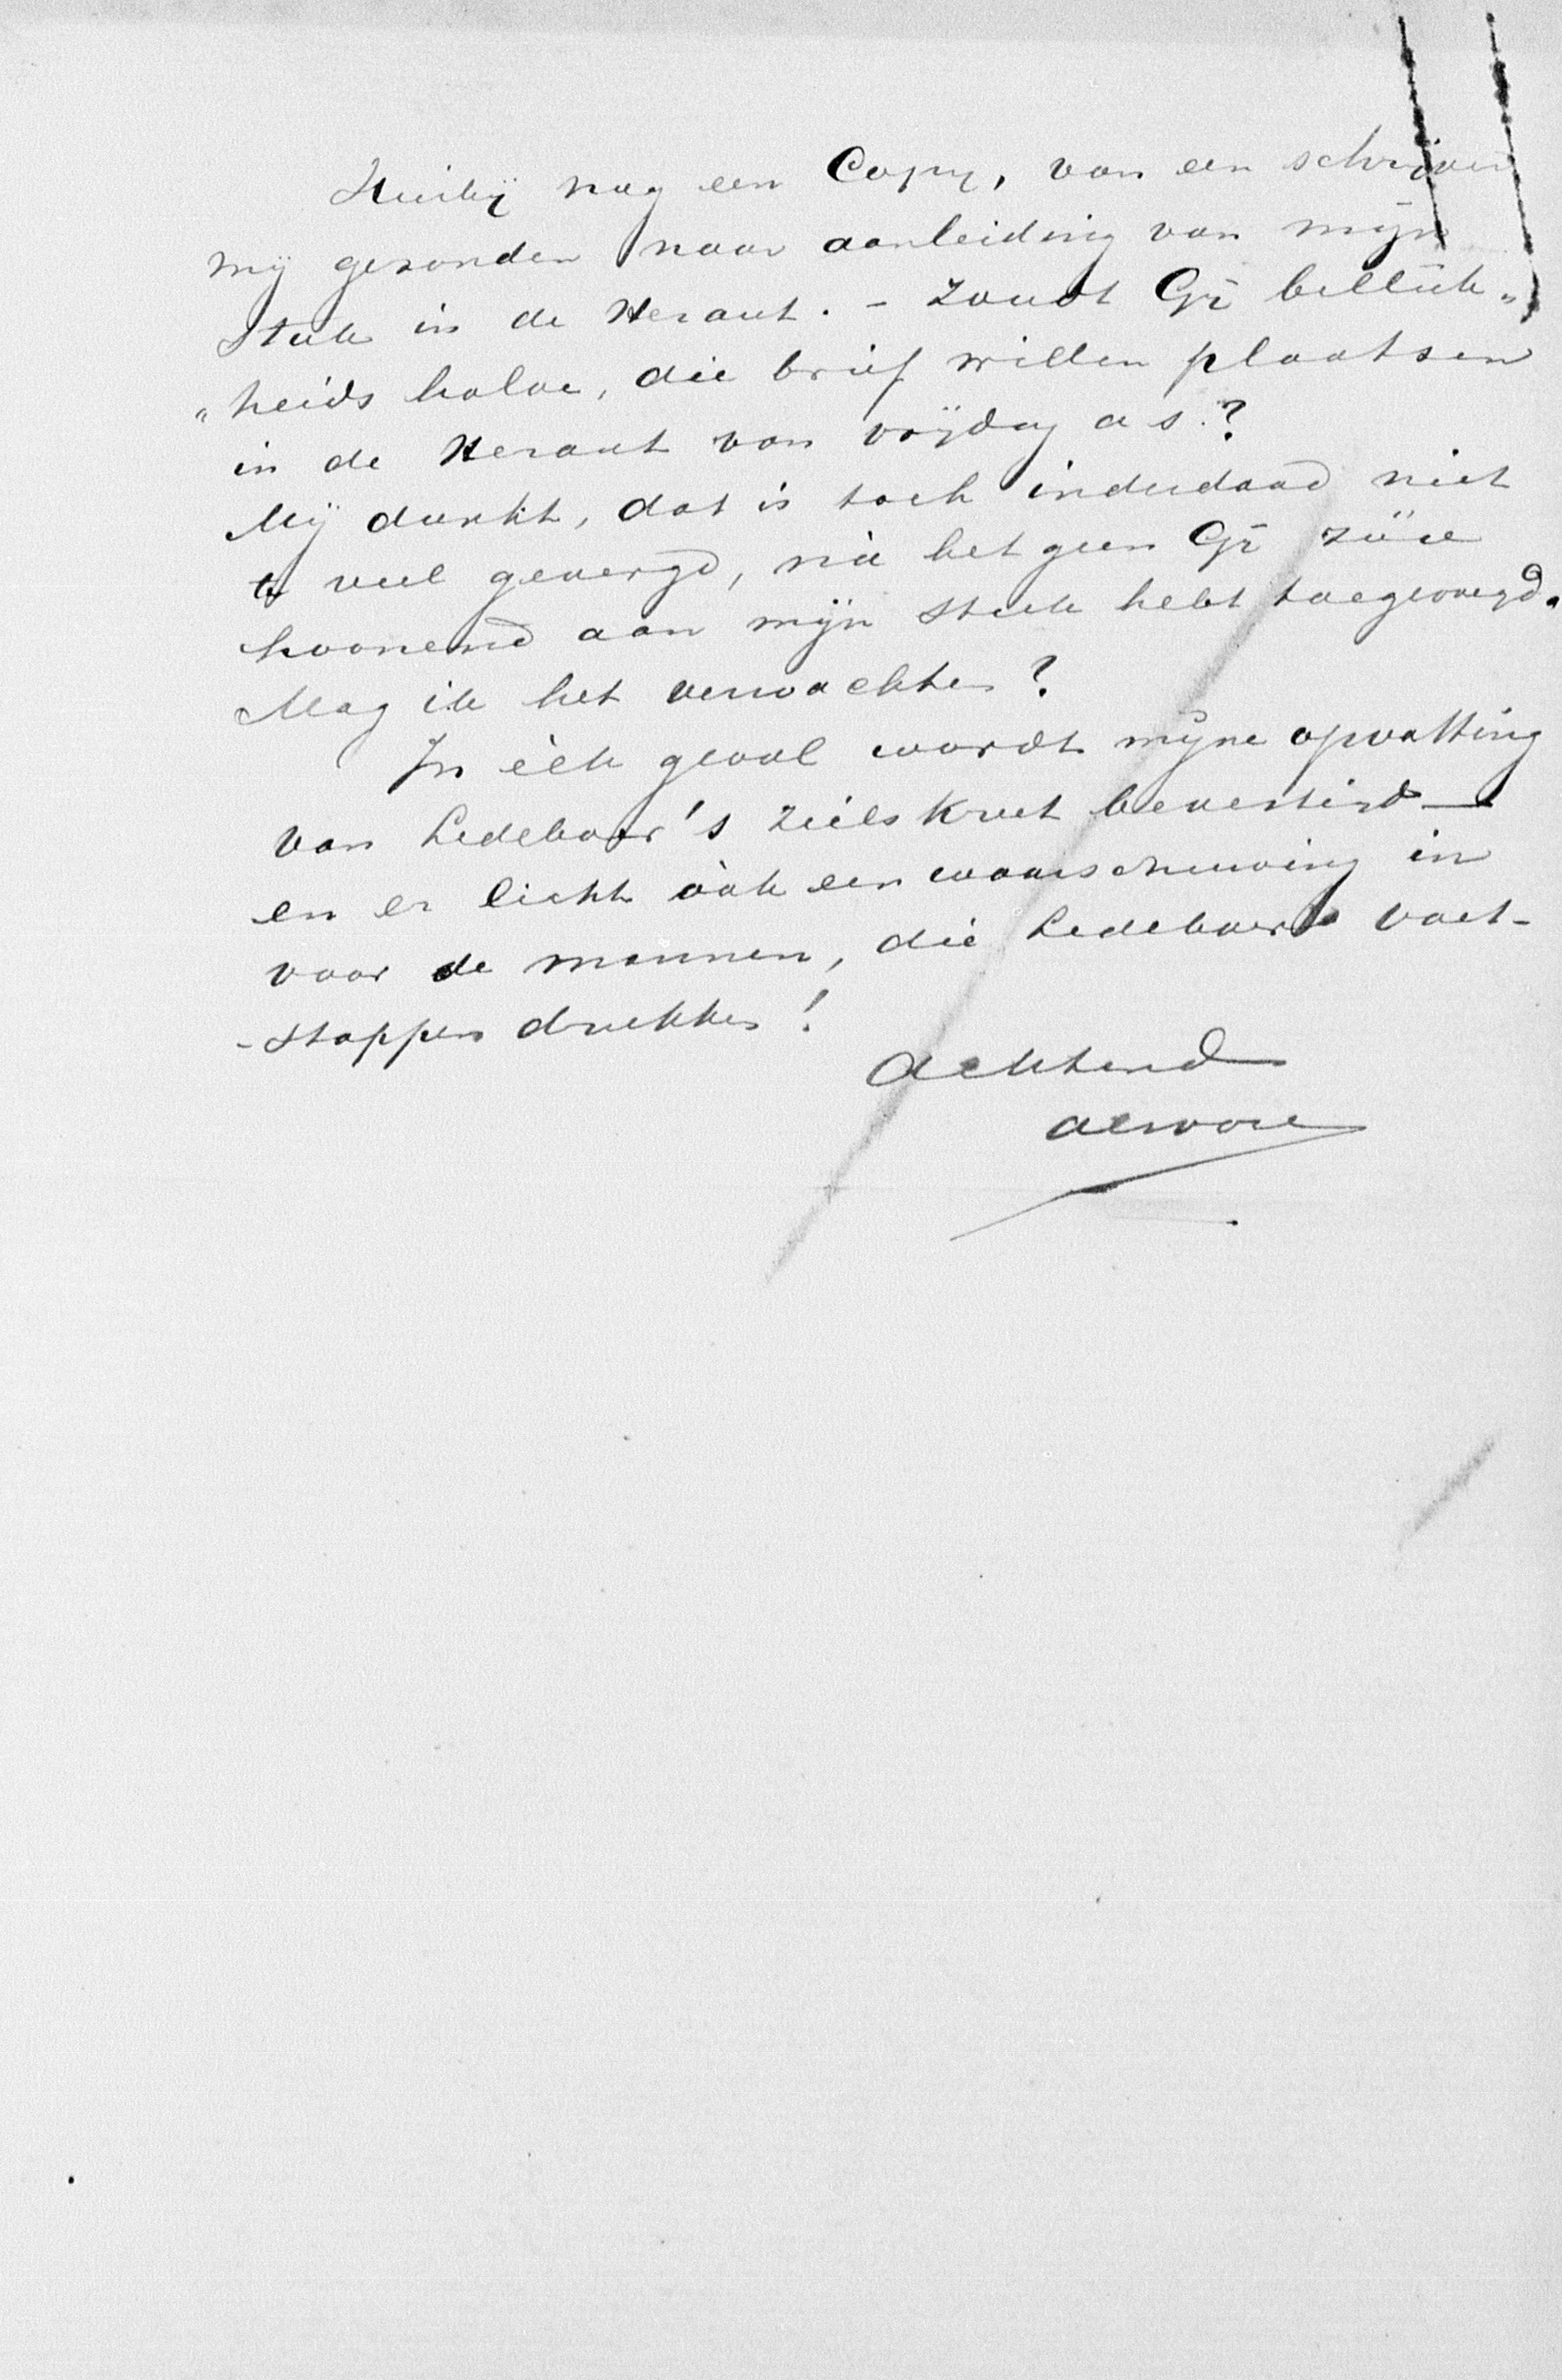 Hierbij nog een Copy, van een schrijven
mij gezonden naar aanleiding van mijn
stuk in de Heraut. - Zoudt Gij billijk„
„heids halve, die brief willen plaatsen
in de Heraut van vrijdag a s.?
Mij dunkt, dat is toch inderdaad niet
te veel gevergd, ná het geen Gij
hoonend aan mijn stuk hebt toegevoegd.
Mag ik het verwachten?
In èlk geval wordt mijne opvatting
van Ledeboer's zielskreet bevestigd
en er licht òòk een waarschuwing in
voor de mannen, die Ledeboers voet-
-stappen drukken!
Achtend